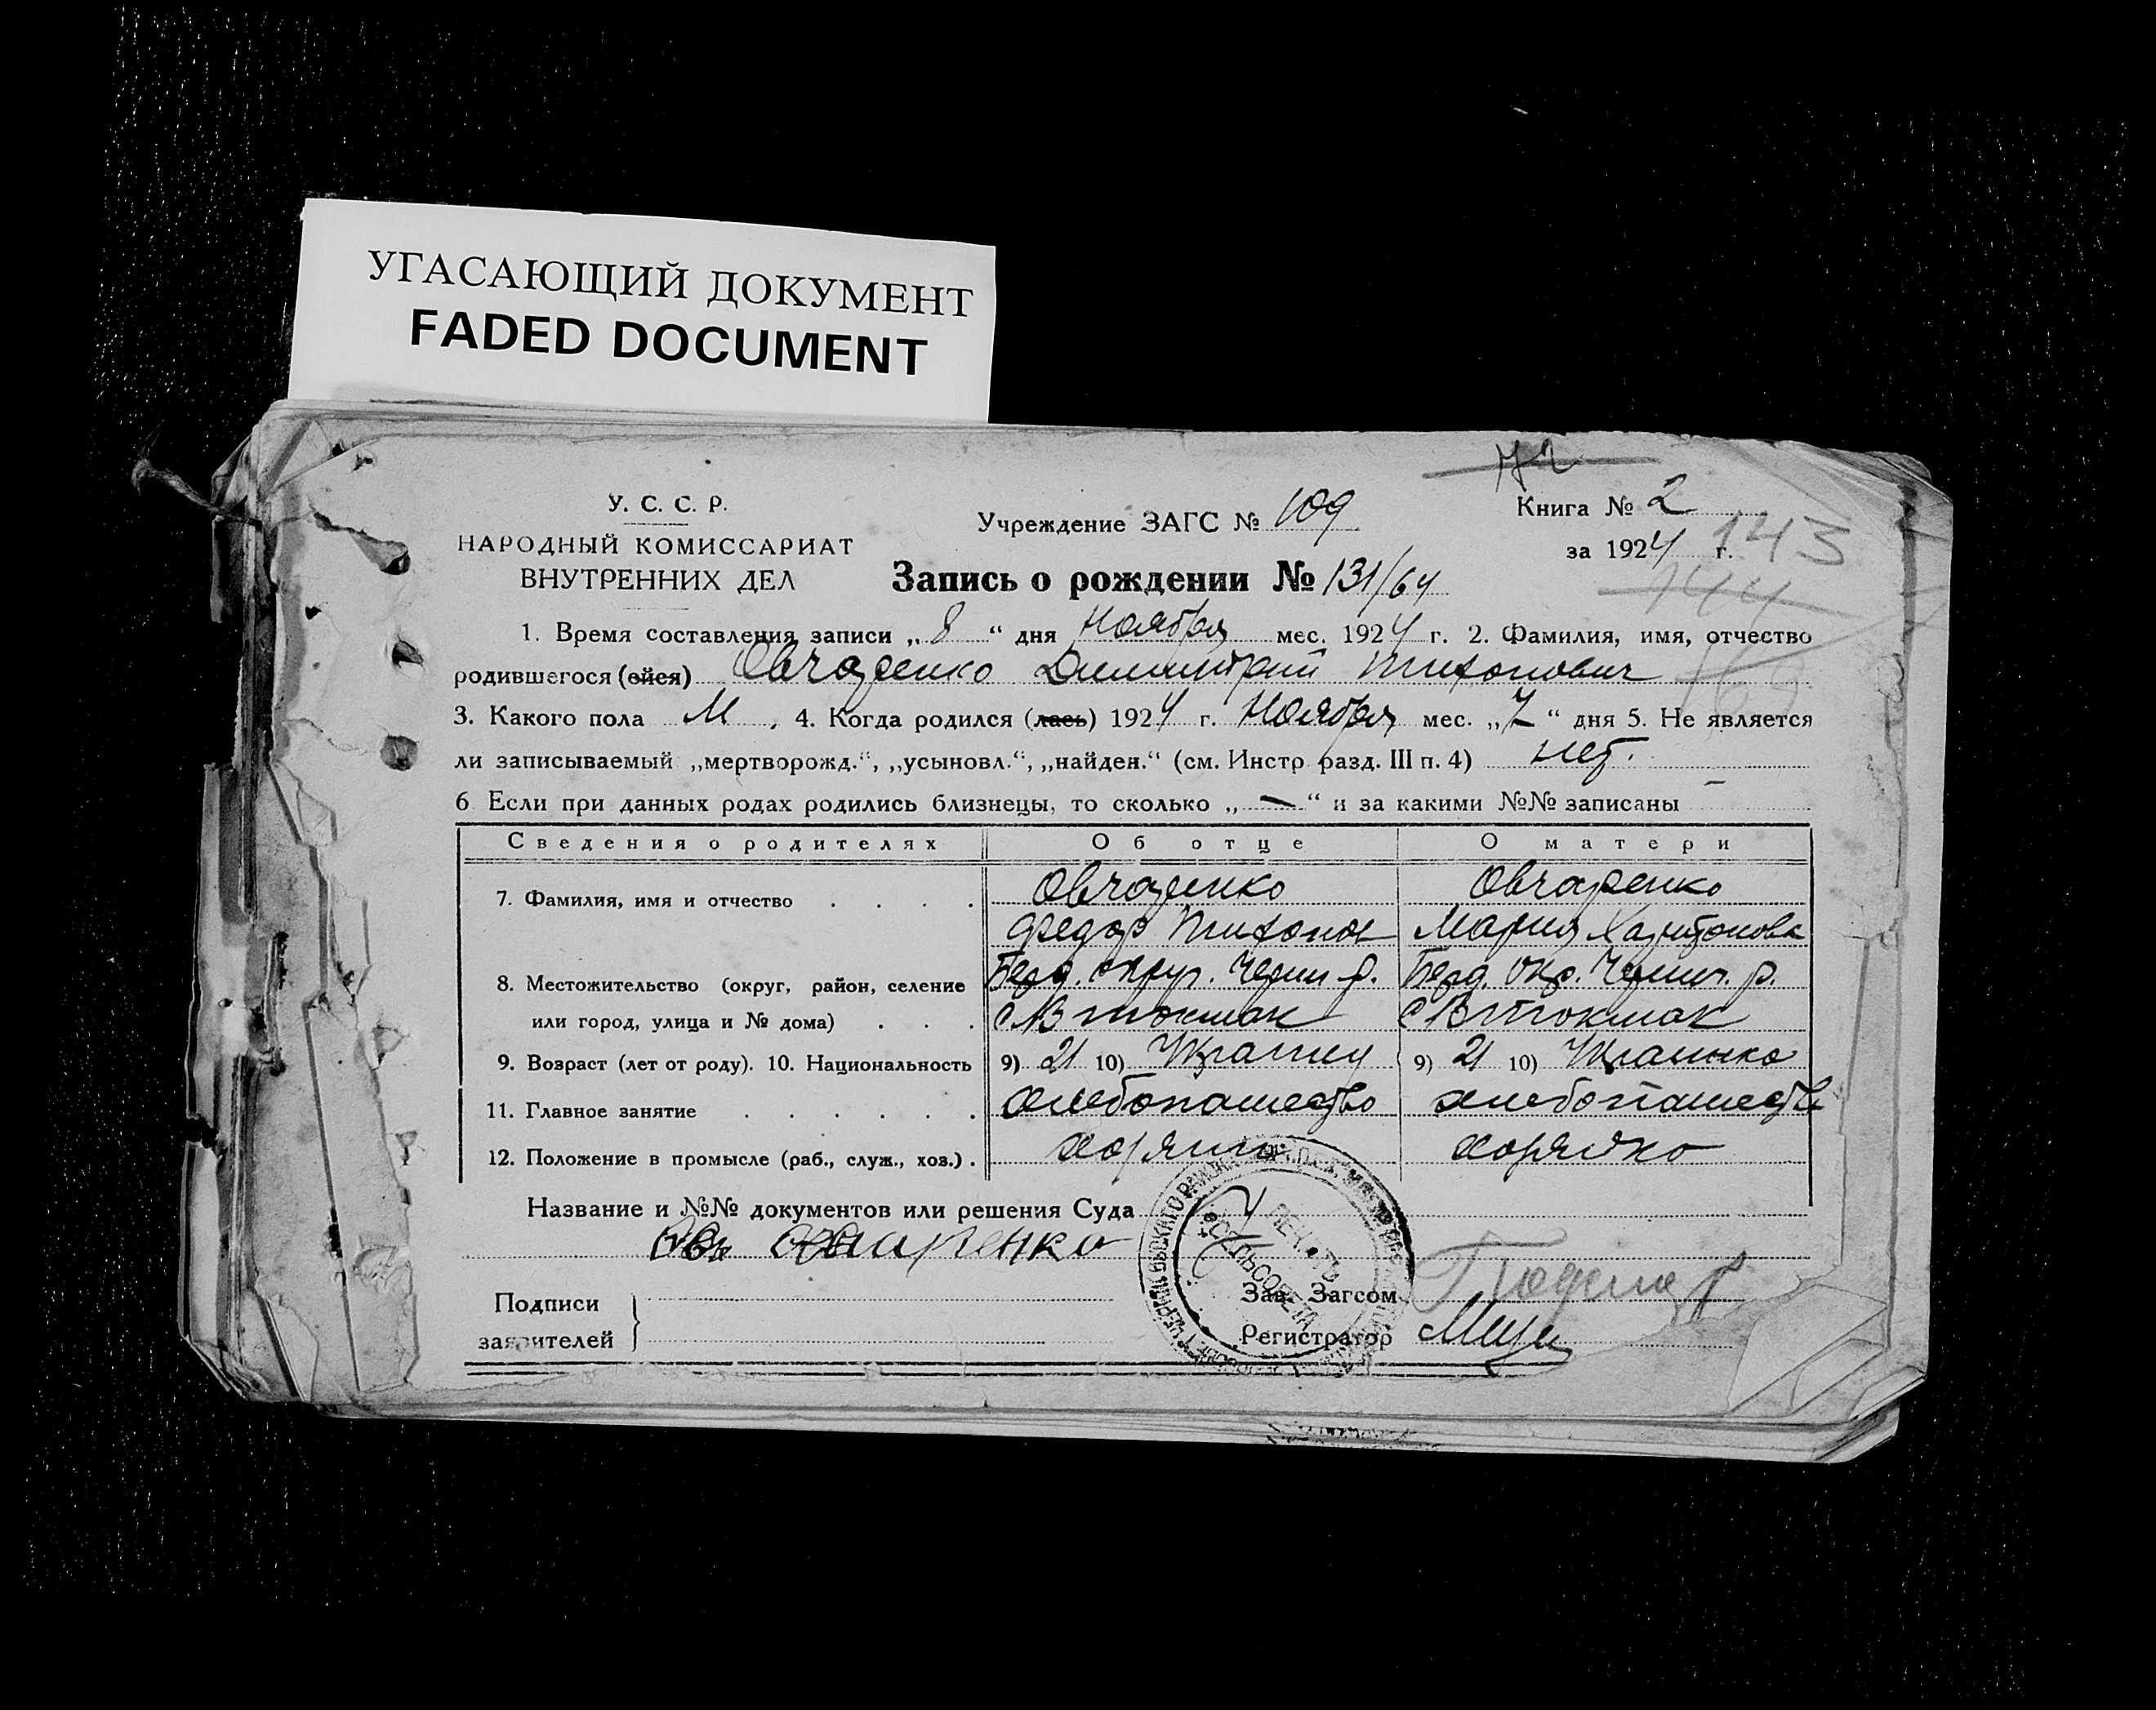 УГАСАЮЩИЙ ДОКУМЕНТ
FADED DOCUMENT
У. С. С. Р.
НАРОДНЫЙ КОМИССАРИАТ
ВНУТРЕННИХ ДЕЛ
Учреждение ЗАГС № 109
Книга № 2
за 1924 г. 143
144
Запись о рождении № 131/64
1. Время составления записи „8“ дня Ноября мес. 1924 г. 2. Фамилия, имя, отчество
родившегося (ейся) Овчаренко Димитрий Тихонович
3. Какого пола М. 4. Когда родился (лась) 1924 г. Ноября мес. „7“ дня 5. Не является
ли записываемый „мертворожд.“, „усыновл.“, „найден.“ (см. Инстр разд. III п. 4) нет.
6 Если при данных родах родились близнецы, то сколько „—“ и за какими №№ записаны —
Сведения о родителях Об отце О матери
7. Фамилия, имя и отчество Овчаренко Овчаренко
Федор Тихонов Мария Харитонова
8. Местожительство (округ, район, селение Берд. округ. Черни р. Берд. окр. р.
или город, улица и № дома) с В Токмак с В Токмак
9. Возраст (лет от роду). 10. Национальность 9) 21 10) 9) 21 10) Украинка
11. Главное занятие хлебопашество хлебопашество
12. Положение в промысле (раб., служ., хоз.) хозяин хозяйка
Название и №№ документов или решения Суда
Подписи
заявителей
Зав. Загсом
Регистратор